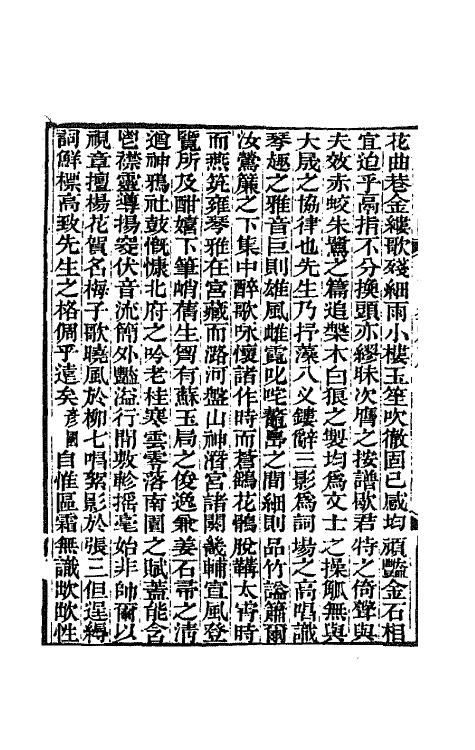 花曲巷金縷歌殘細雨小樓玉笙吹徹固已感均頑豔金石相
宜迨乎鬲指不分換頭亦繆昧次膺之按譜歇君特之倚聲與
夫效赤蛟朱鷺之篇追槃木白狼之製均為文士之操觚無與
大晟之協律也先生乃抒藻八义鏤辭三影為詞場之高唱識
琴趣之雅音巨則雄風雌霓叱咤鼇㠀之間細則品竹論簫爾
汝鶯簾之下集中醉歌咏懷諸作時而蒼鶻花鴿脫韝太清時
而燕筑雍琴雅在宮藏而潞河盤山神潛宮諸闋畿輔宣風登
覽所及酣嬉下筆峭蒨生智有蘇玉局之俊逸兼姜石帚之清
遒神鴉社鼓慨慷北府之吟老桂寒雲零落南園之賦蓋能含
咀襟靈導揚窔伏音流簡外豔溢行間敷軫搖毫始非帥爾以
視章擅楊花賀名梅子歌曉風於柳七唱絮影於張三但逞縟
詞鮮標高致先生之格倜乎遠矣彥國自惟區霜無識歟歟性